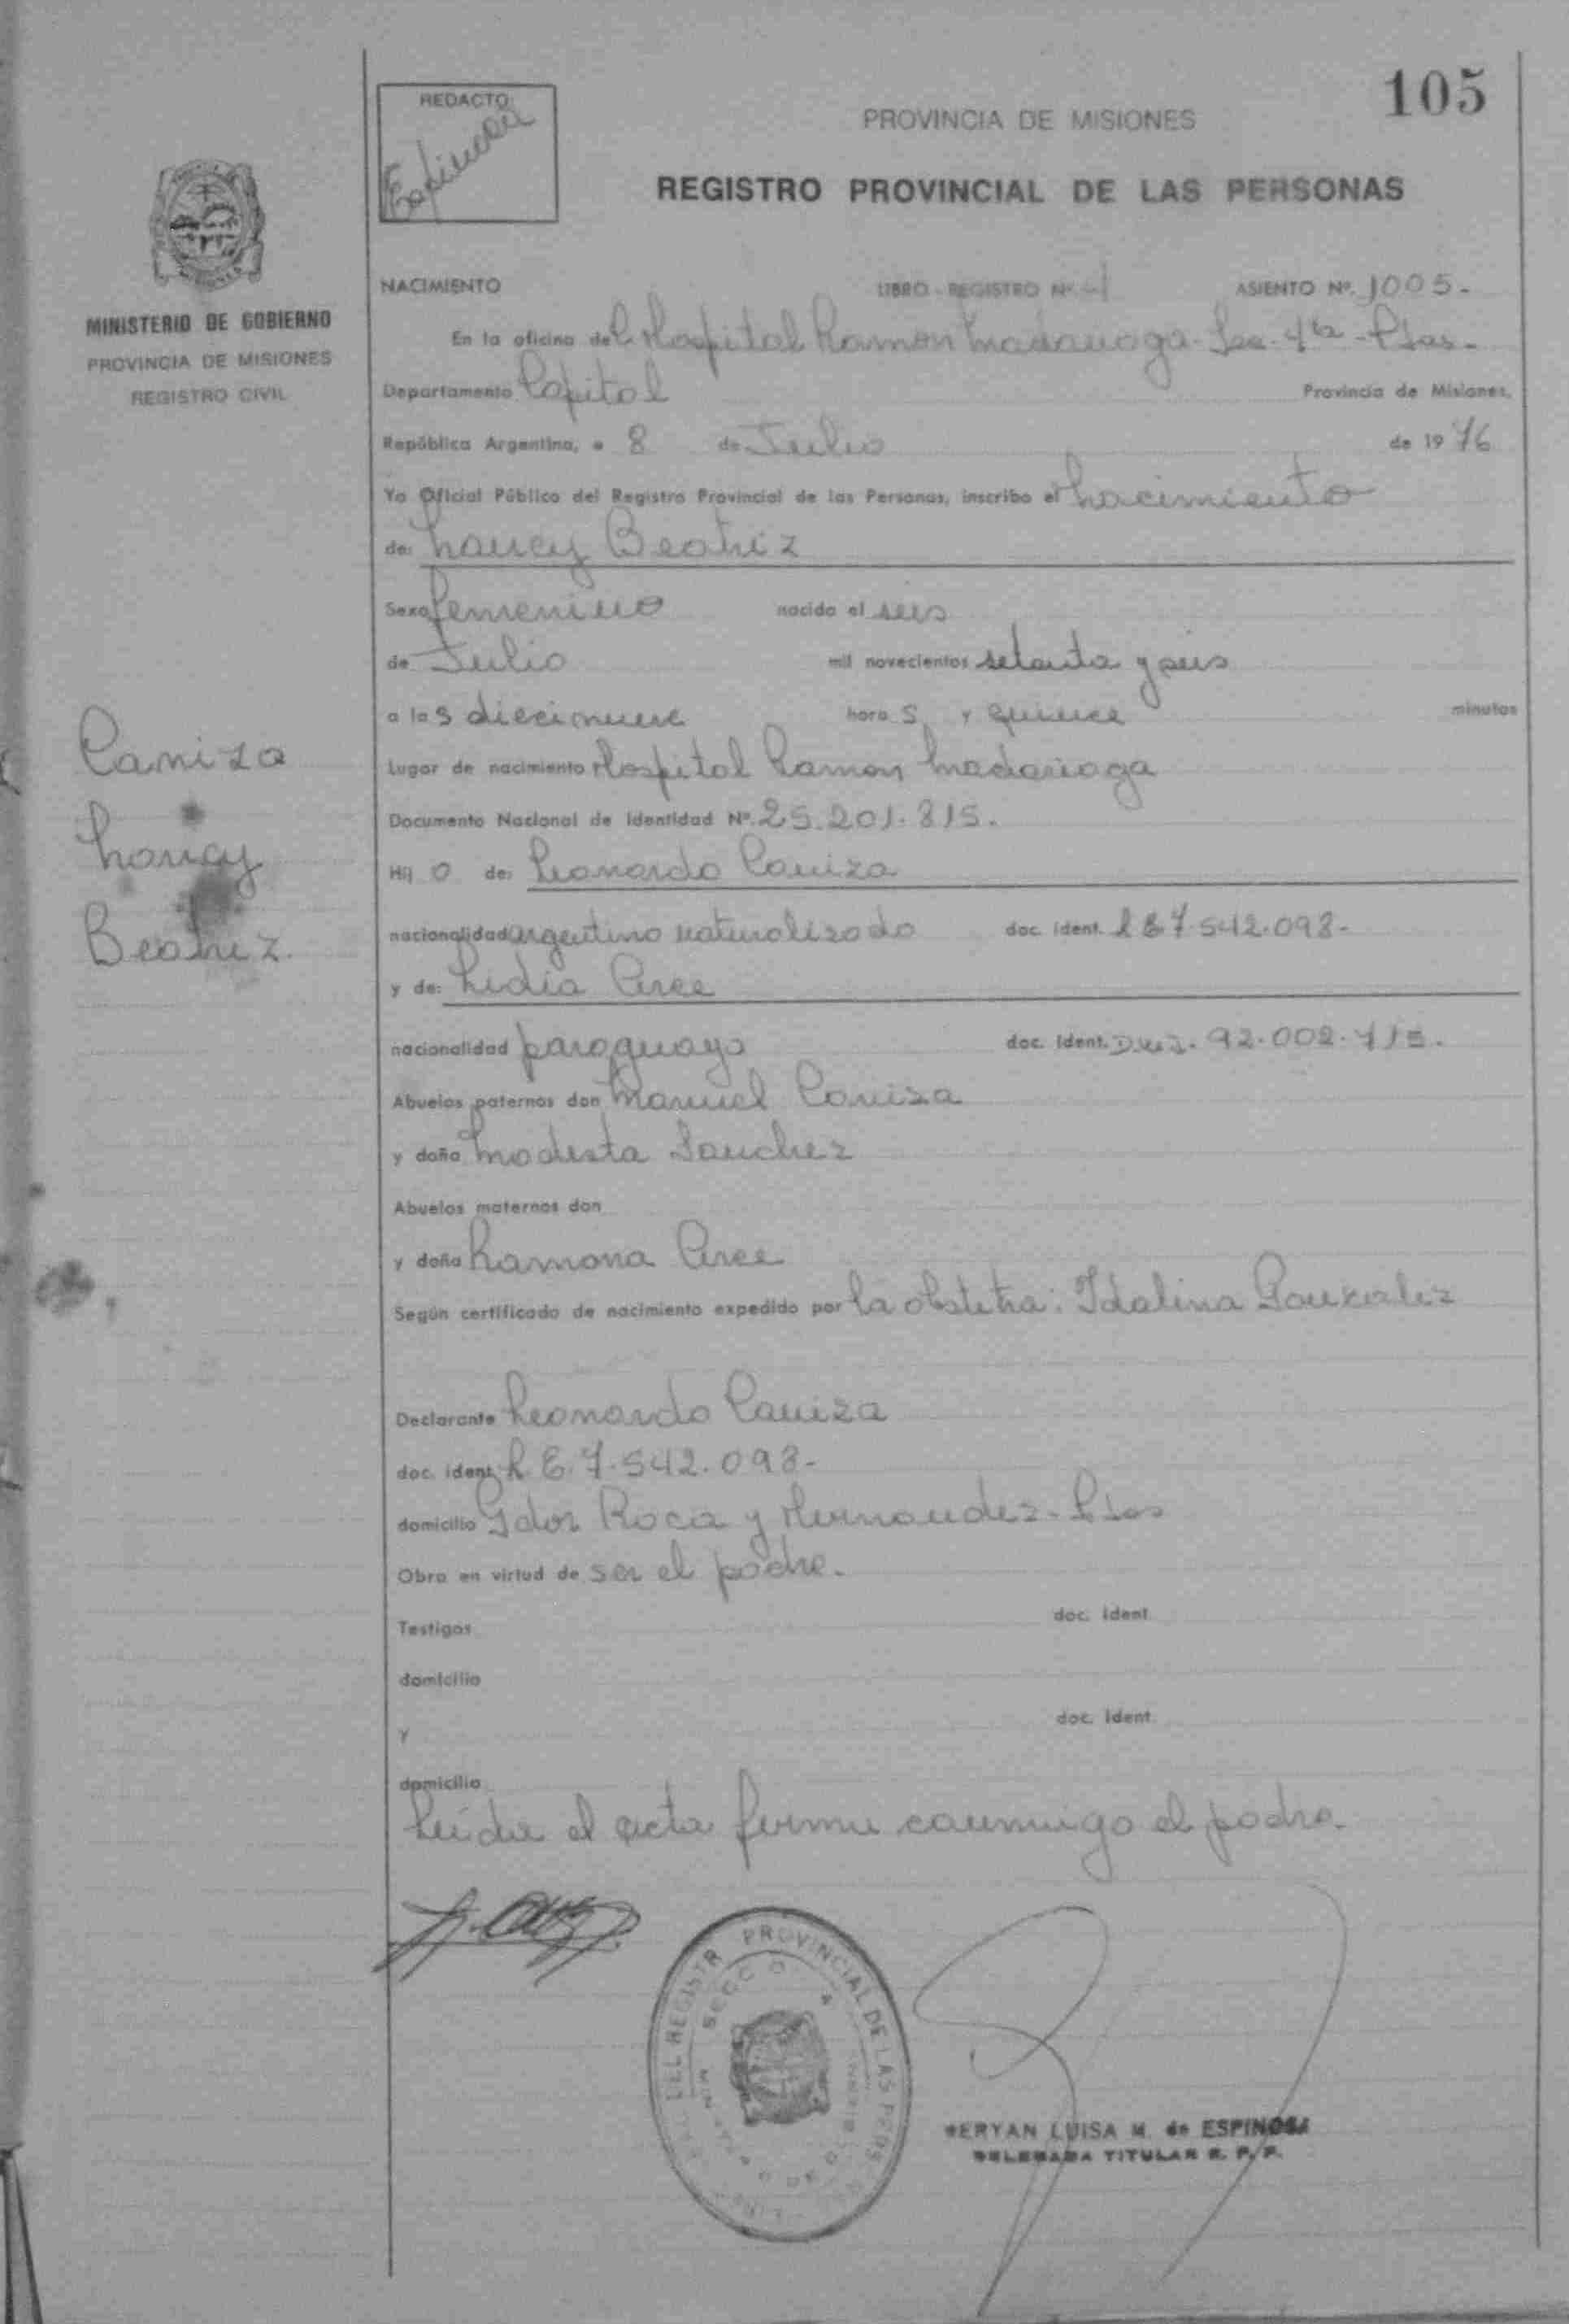 105
REDACTO
Espinosa
PROVINCIA DE MISIONES
REGISTRO PROVINCIAL DE LAS PERSONAS
MINISTERIO DE GOBIERNO
PROVINCIA DE MISIONES
REGISTRO CIVIL
NACIMIENTO LIBRO - REGISTRO Nº ASIENTO Nº. 1005.-
En la oficina del Hospital Ramon Madariaga - Sec. 4ta - Pdas.-
Departamento Capital Provincia de Misiones,
República Argentina, a 8 de Julio de 1976
Yo Oficial Público del Registro Provincial de las Personas, inscribo el nacimiento
de: Nancy Beatriz
Sexo femenino nacido el seis
de Julio mil novecientos setenta y seis
a las diecinueve horas y quince minutos
Lugar de nacimiento Hospital Ramon Madariaga
Documento Nacional de Identidad Nº. 25.201.815.
Hij o de: Leonardo Caniza
nacionalidad argentino naturalizado doc. ident. L E 7.542.098-
y de: Lidia Arce
nacionalidad paraguaya doc. ident. D.N.I. 92.002.715.
Abuelos paternos don Manuel Caniza
y doña Modesta Sanchez
Abuelos maternos don
y doña Ramona Arce
Según certificado de nacimiento expedido por la obstetra: Idalina Gonzalez
Declarante Leonardo Caniza
doc. ident. L.E. 7.542.098-
domicilio Gdor Roca y Hernandez - Pdas
Obra en virtud de ser el padre.
Testigos doc. ident.
domicilio
y doc. ident.
domicilio
Leida el acta firma conmigo el padre.
Caniza
Nancy
Beatriz.
DEL REGISTR PROVINCIAL DE LAS PERS
LUISA M. de ESPINOSA
DELEGADA TITULAR R. P. P.